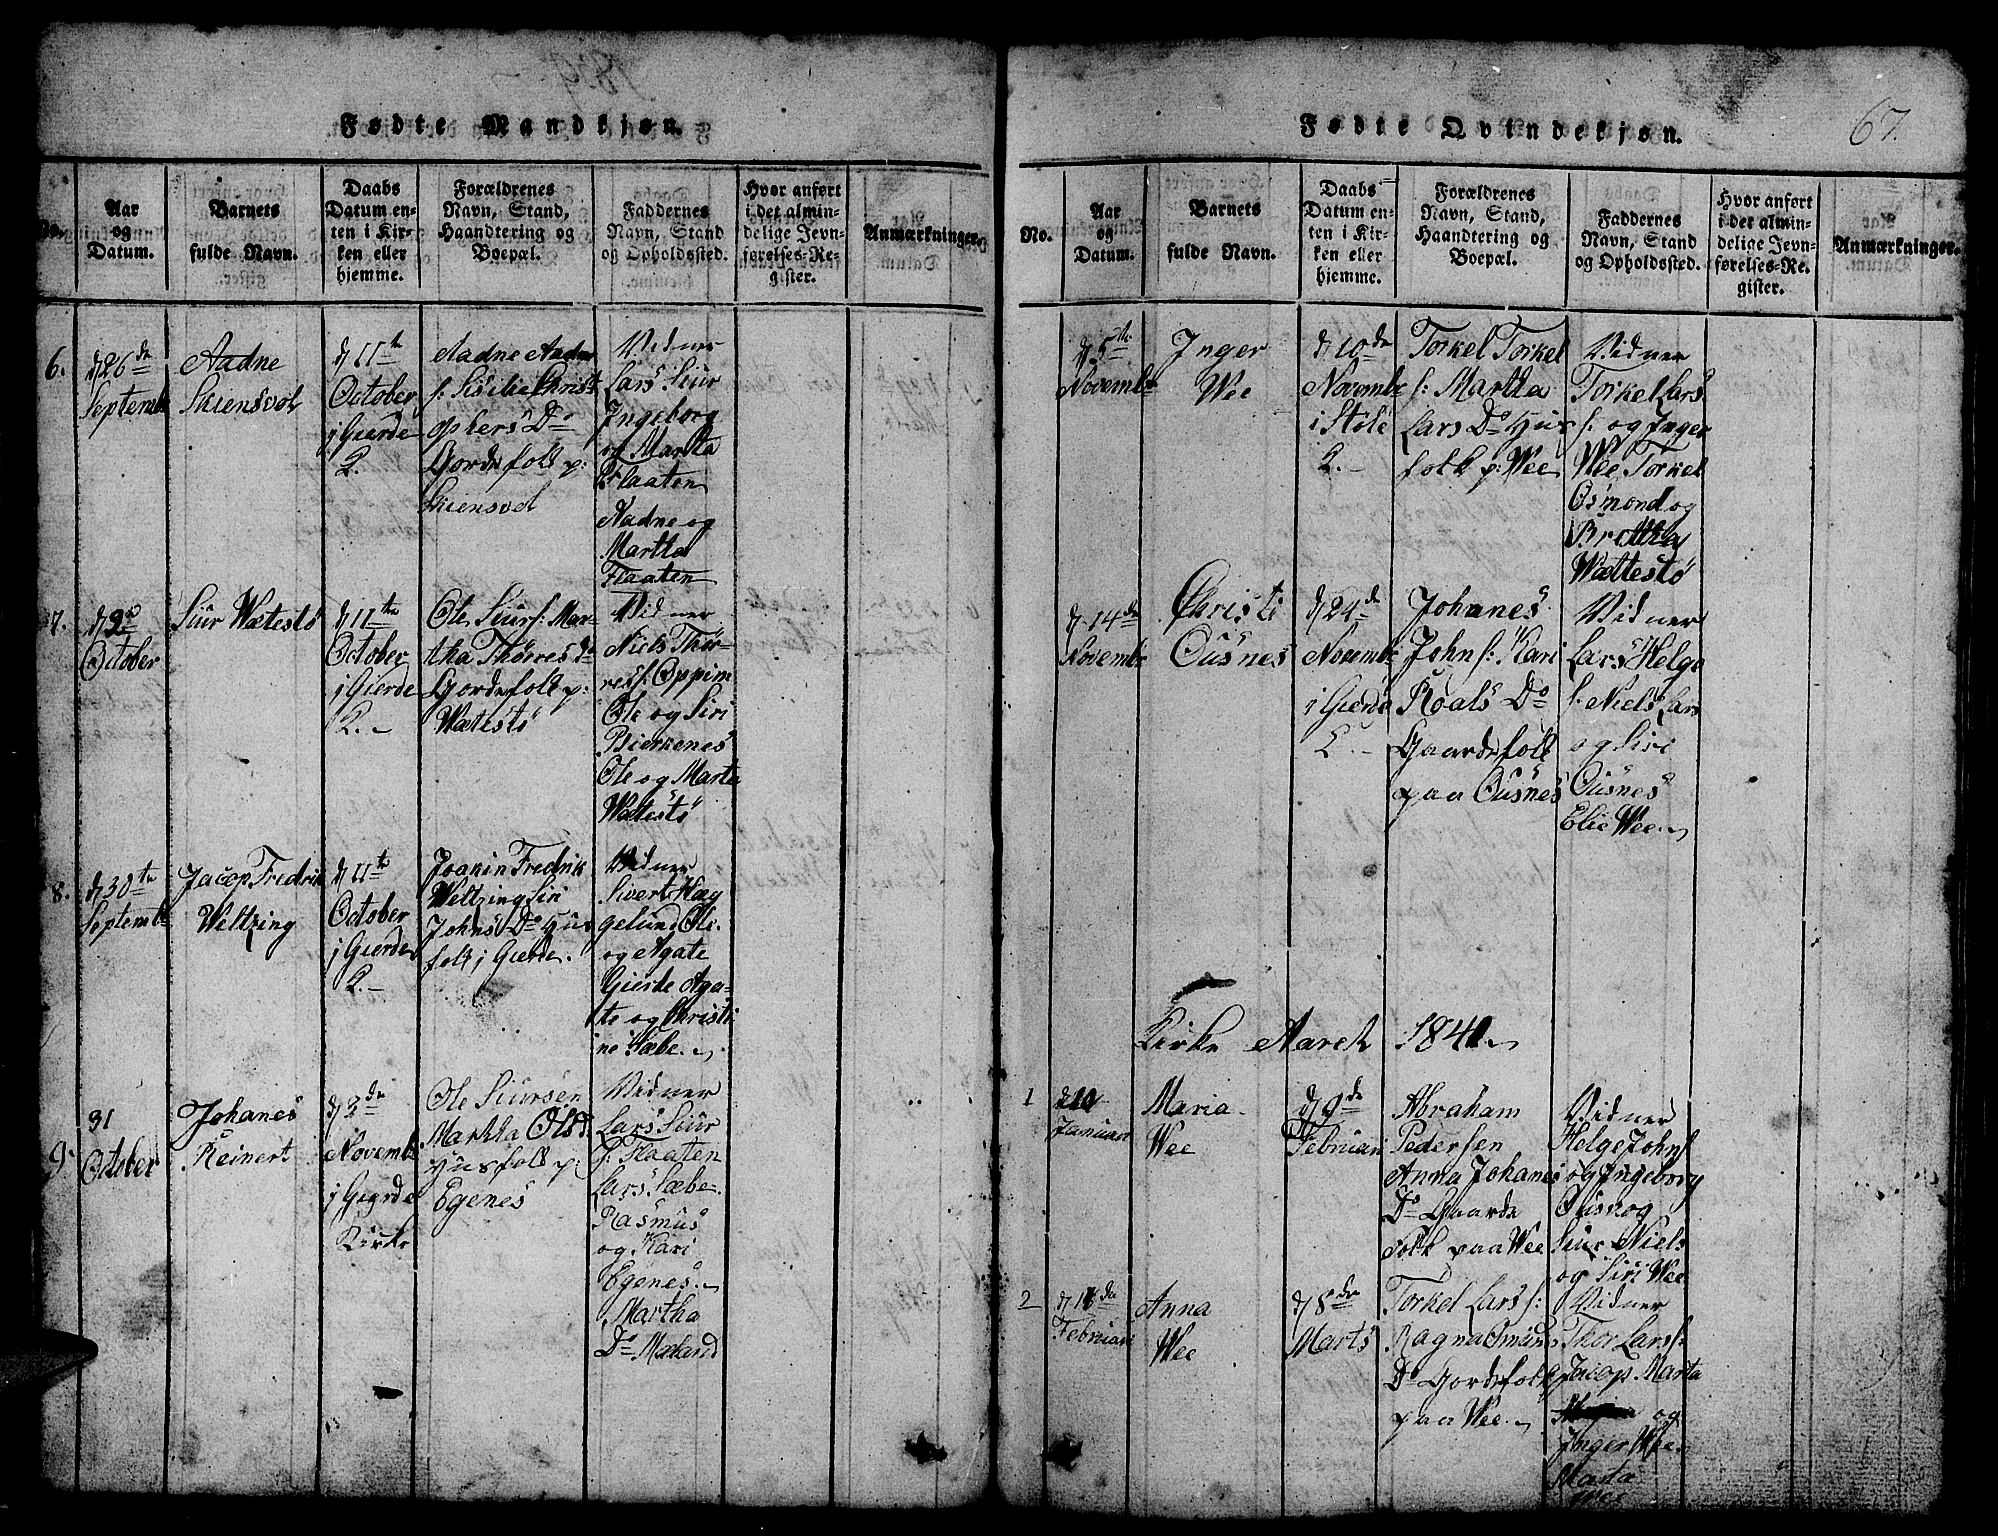 1839
Fødte Mandkjøn.
No.
Aar
og
Datum.
Barnets
fulde Navn.
Daabs
Datum en-
ten i Kir-
ken eller
hjemme.
Forældrenes
Navn, Stand,
Haandtering og
Boepæl.
Faddernes
Navn, Stand
og Opholdssted.
Hvor anført
i det almin-
delige Jevn-
førelses-Re-
gister.
Anmærkninger.
6.
d 26de
Septembr
Aadne
Skiensvol
d 11te
October
j Gierde
K.
Aadne Aadne
s: Sisilie Christ
ophers Do
Gordsfolk p:
Skiensvol
Vidner
Lars Siur
Ingeborg
og Marta
Flaaten
Aadne og
Martha
Flaaten
7.
d 2de
October
Siur Wætestø
d 11te
October
j Gierde
K.
Ole Siurs: Mar-
tha Thøres D
Gordsfolk p:
Wætestø
Vidner
Niels Thør-
res s. Oppim
Ole og Siri
Bierkenes
Ole og Marta
Wætestø
8.
d 30te
Septembr
Jacop Fredrik
Weltzing
d 11te
October
j Gierde
K.
Joakin Fredrik
Weltzing Siri
Johns Do Hus
folk j Gierde.
Vidner
Sivert Hæg
gelund Ole
og Agate
Gierde Aga-
te og Christi
ne Sæbe
9.
31
October
Johanes
Reinert
d 2de
Novembr
j Gierde
Kirke
Ole Siursen
Martha Olsd.
Husfolk p:
Egenes
Vidner
Lars Siur
s: Flaaten
Lars Sæbe
Rasmus
og Kari
Egenes
Martha
Do Mæland
Fødte Qvindekjøn.
67.
No.
Aar
og
Datum.
Barnets
fulde Navn.
Daabs
Datum en-
ten i Kir-
ken eller
hjemme.
Forældrenes
Navn, Stand,
Haandtering og
Boepæl.
Faddernes
Navn, Stand
og Opholdssted.
Hvor anført
i det almin-
delige Jevn-
førelses-Re-
gister.
Anmærkninger.
d 5te
Novembr
Inger
Wee
d 10de
Novembr
i Støle
K.
Torkel Torkel
s: Martha
Lars Do Hus
folk p: Wee
Vidner
Torkel Lars
s: og Inger
Wee Torkel
Osmond og
Brettha
Wættestø
d 14de
Novembr
Christi
Ousnes
d 24de
Novembr
i Gierde
K.
Johanes
John s: Kari
Roals Do
Gaardsfolk
paa Ousnes
Vidner
Lars Helge
s: Niels Lars
og Siri
Ousnes
Elie Wee
Kirke Aaret 1840
1
d 10
Januari
Maria
Wee
d 9de
Februari
Abraham
Pedersen
Anna Johanes
Do Gaards
folk paa Wee
Vidner
Helge Johns
og Ingeborg
Ousn og
Siur Niels
og Siri Wee
2
d 14de
Februari
Anna
Wee
d 8de
Marts
Torkel Lars s:
Ragna Omunds
Do Gordsfolk
paa Wee
Vidner
Thor Lars s:
Jacop Marta
og
Inger Wee
Marta
Wee